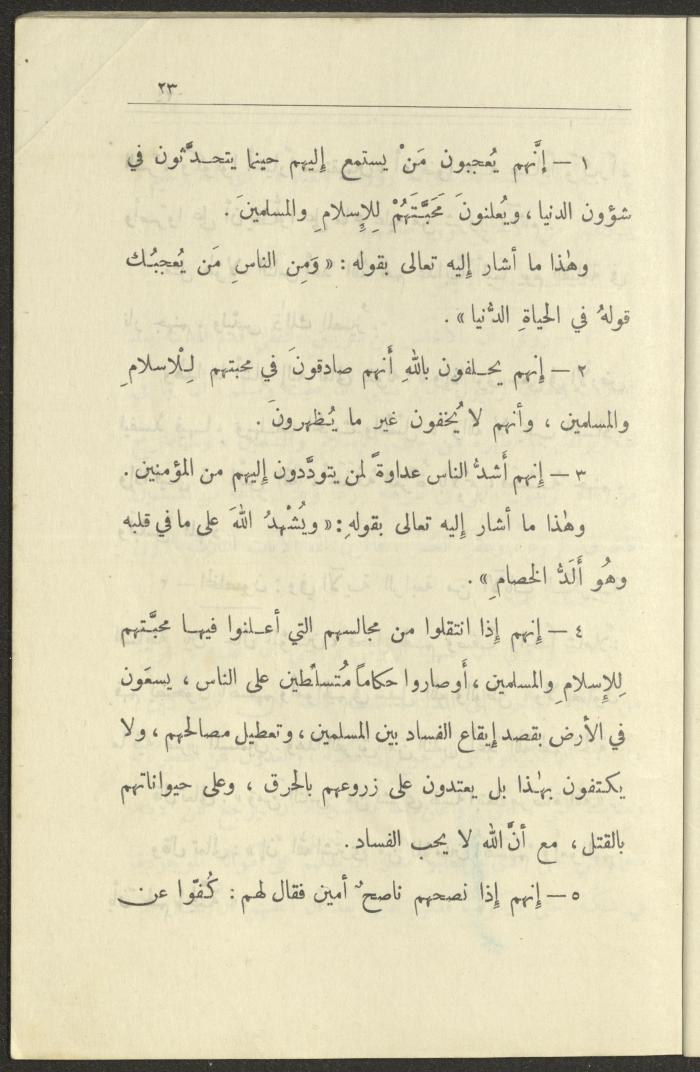 ٢٣
١ — إنَّهم يُعجبون مَنْ يستمع إليهم حينما يتحدَّثون في
شؤون الدنيا ، ويُعلنونَ مَحَبَّتَهُمْ لِلإِسلامِ والمسلمينَ .
وهٰذا ما أشار إليه تعالى بقوله : « وَمِن الناسِ مَن يُعجبُك
قولهُ في الحياةِ الدُّنيا » .
٢ — إنهم يحلفون باللهِ أَنهم صادقونَ في محبتهم لِلْاسلامِ
والمسلمين ، وأنهم لا يُخفون غير ما يُظهرونَ .
٣ — إِنهم أَشدُّ الناس عداوةً لمن يتودَّدون إليهم من المؤمنين .
وهٰذا ما أشار إليه تعالى بقولهِ : « ويُشْهِدُ اللهَ على ما في قلبه
وهُو أَلَدُّ الخصامِ » .
٤ — إنهم إذا انتقلوا من مجالسهم التي أعلنوا فيها محبَّتهم
لِلإسلامِ والمسلمين ، أوصاروا حكاماً مُتسلِّطين على الناس ، يسعَون
في الأرض بقصد إيقاع الفساد بين المسلمين ، وتعطيل مصالحهم ، ولا
يكتفون بهٰذا بل يعتدون على زروعهم بالحرق ، وعلى حيواناتهم
بالقتل ، مع أنَّ الله لا يحب الفساد .
٥ — إنهم إذا نصحهم ناصحٌ أمين فقال لهم : كُفّوا عن